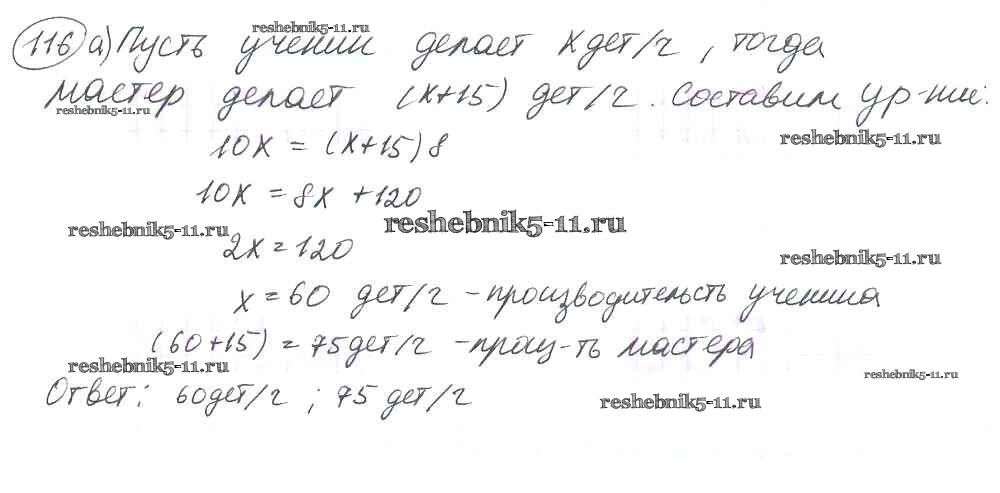 reshebnik5-11.ru
116 а) Пусть ученик делает x дет/ч, тогда
мастер делает (x+15) дет/ч. Составим ур-ние:
reshebnik5-11.ru
reshebnik5-11.ru
10x = (x+15)8
10x = 8x +120
reshebnik5-11.ru
reshebnik5-11.ru
2x=120
reshebnik5-11.ru
x=60 дет/ч - производительсть ученика
(60+15) = 75дет/ч - произ-ть мастера
reshebnik5-11.ru
reshebnik5-11.ru
Ответ: 60дет/ч ; 75 дет/ч
reshebnik5-11.ru